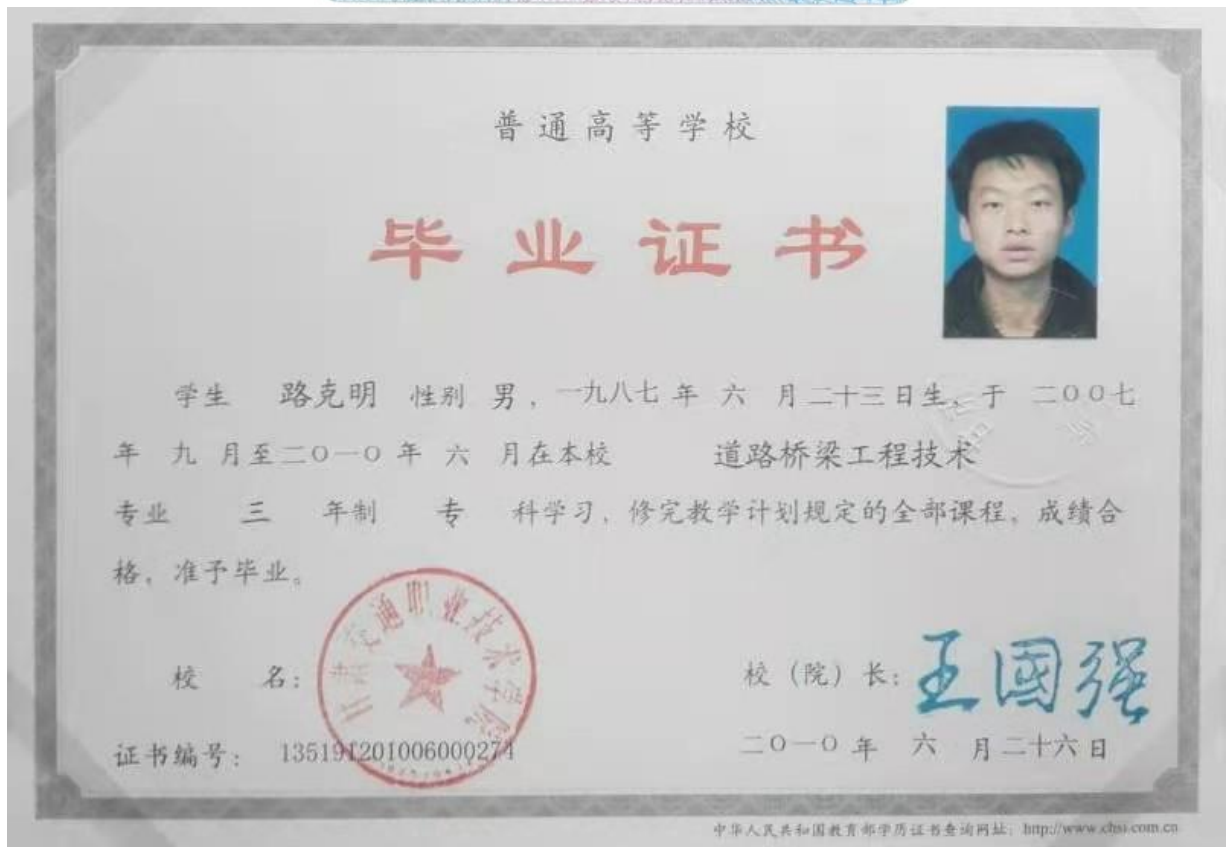 普通高等学校
毕业证书
学生 路克明 性别 男，一九八七 年 六 月二十三日生，于 二〇〇七
年 九 月至二〇一〇 年 六 月在本校 道路桥梁工程技术
专业 三 年制 专 科学习，修完教学计划规定的全部课程，成绩合
格，准予毕业。
甘肃交通职业技术学院
校 名：
校（院）长：王國强
证书编号： 135191201006000274
二〇一〇 年 六 月二十六日
中华人民共和国教育部学历证书查询网址：http://www.chsi.com.cn